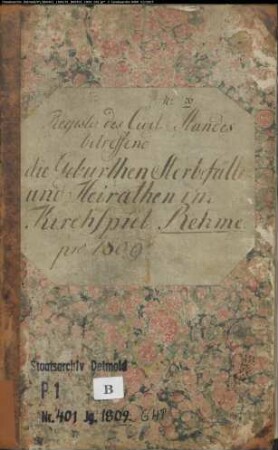 Register des Civil Standes
betreffend
die Geburthen Sterbefälle
und Heirathen im
Kirchspiel Rehme
pro 1809
Staatsarchiv Detmold
P 1
B
Nr. 401 Jg. 1809. GHT